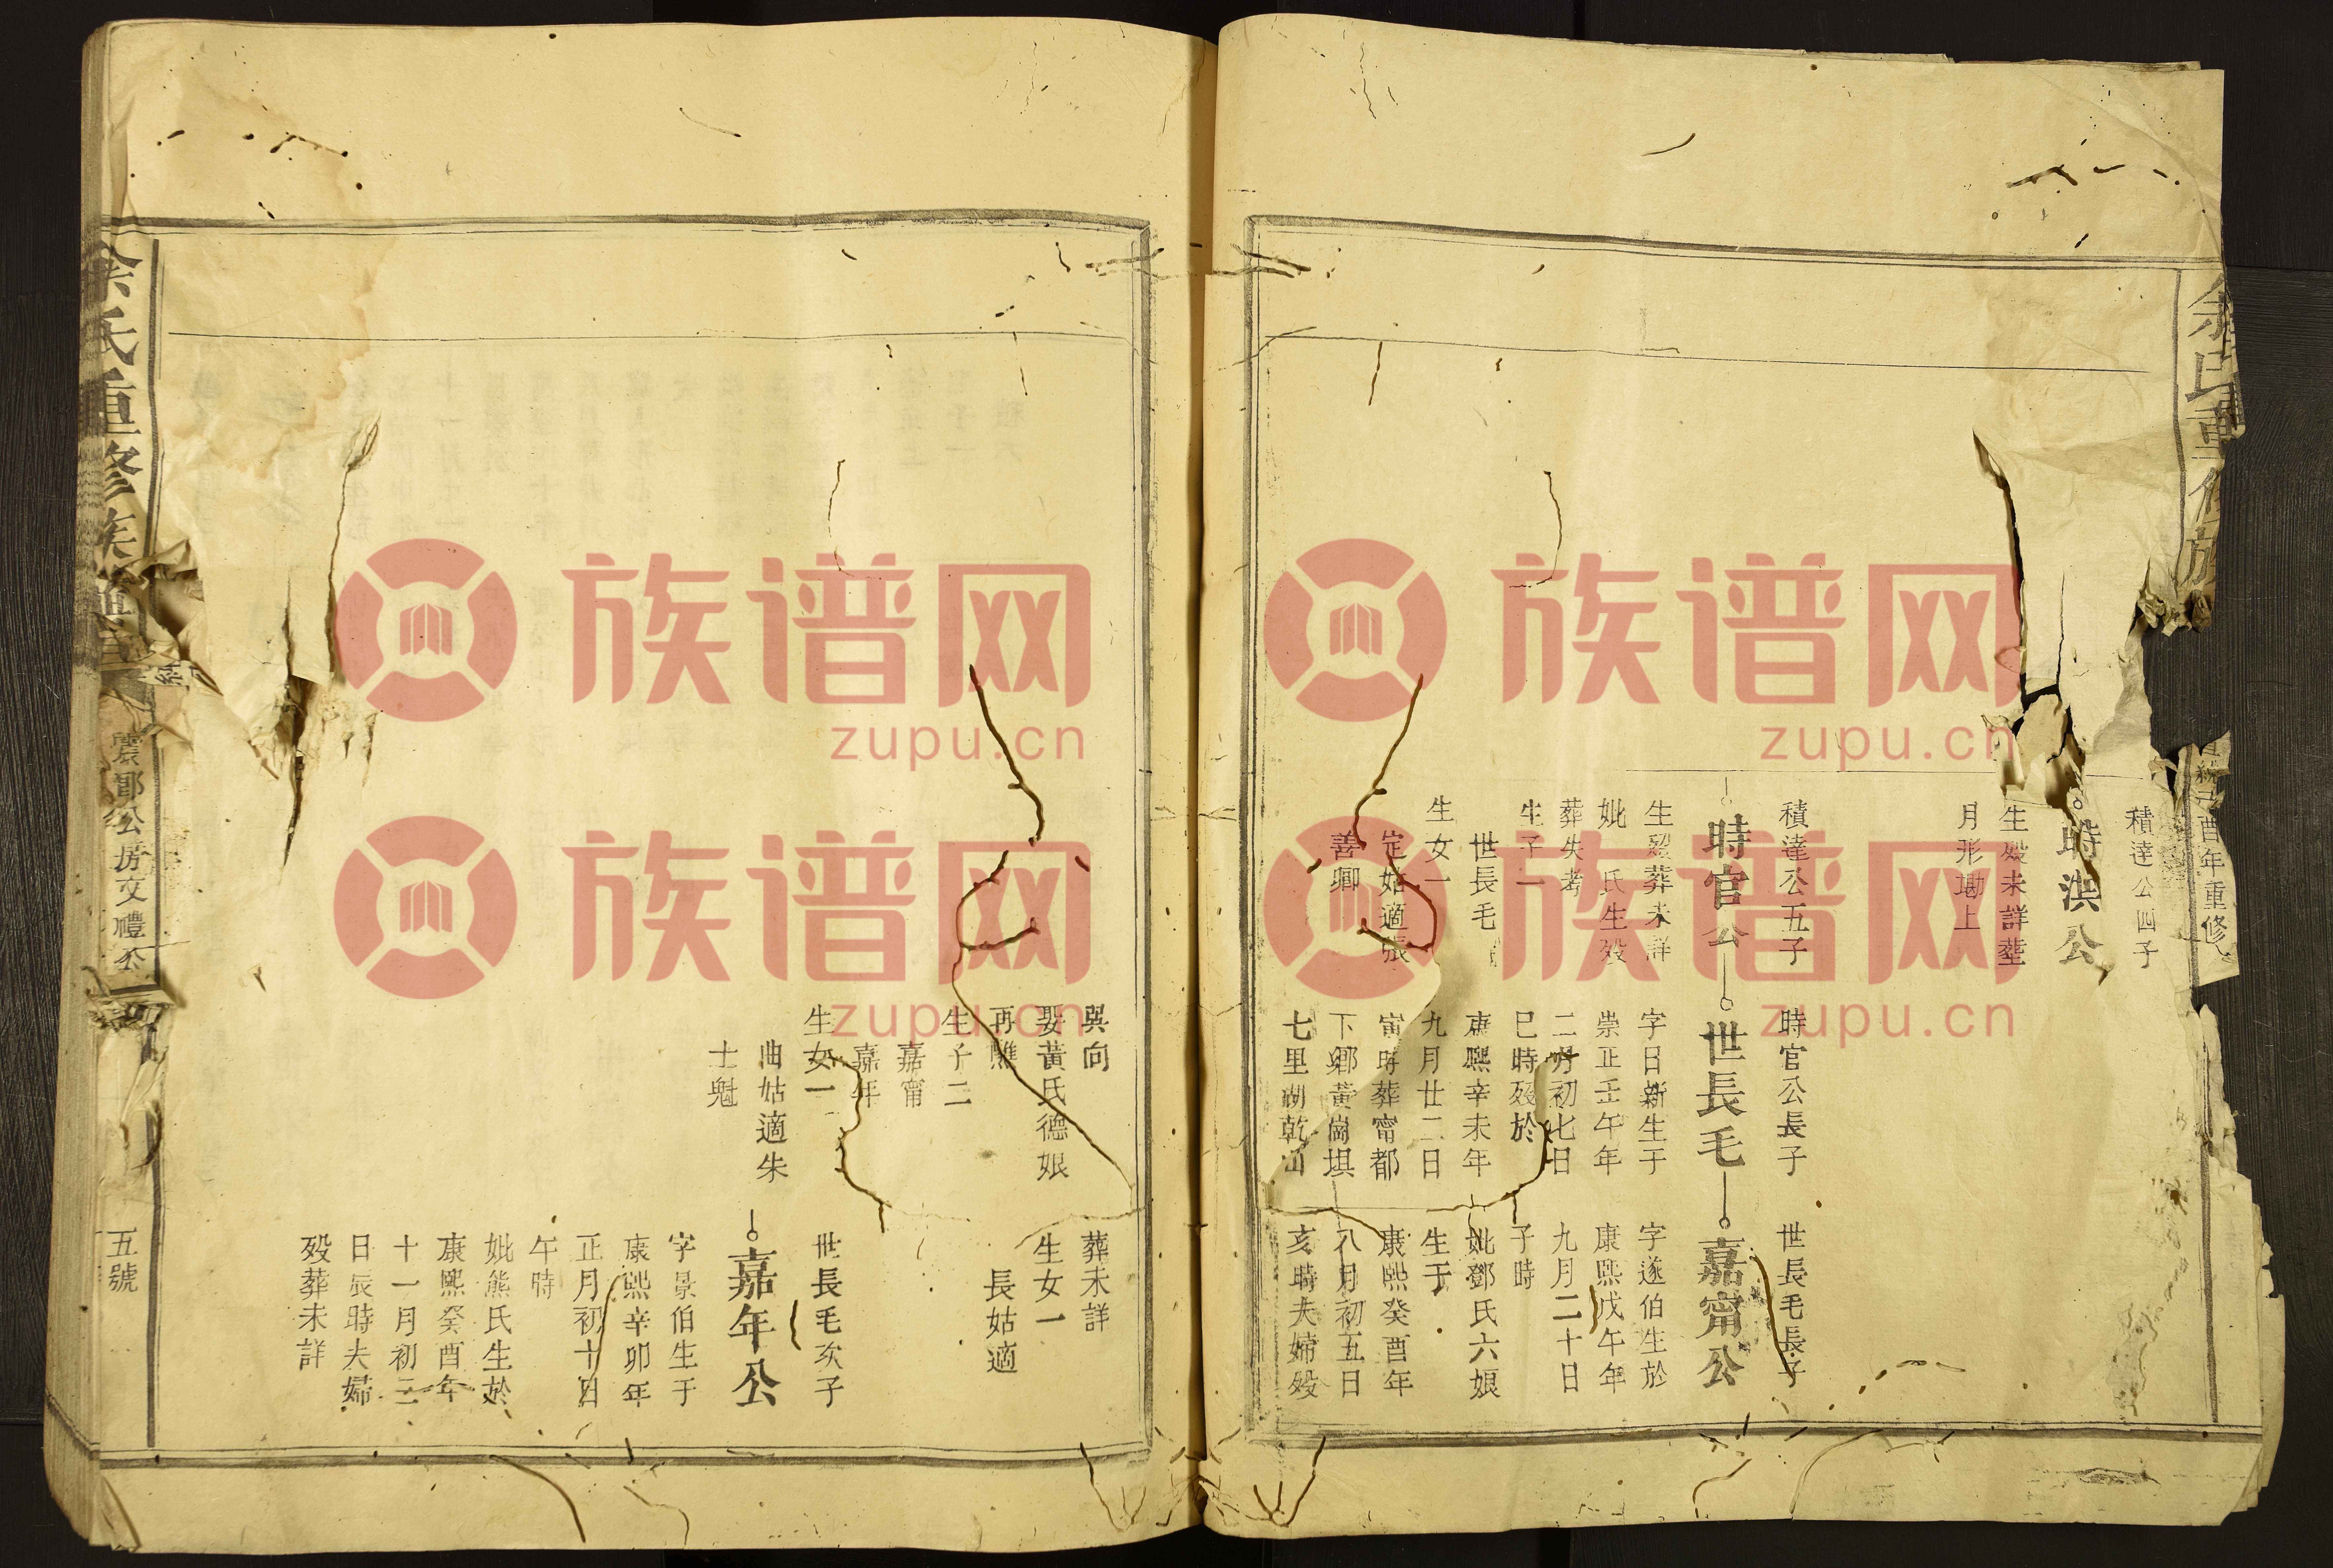 余氏重修族
酉年重修
積達公四子
時洪公
生殁未詳塟
月形㘭上
積達公五子
時官公
生殁葬未詳
妣 氏生殁
葬失考
生子一
世長毛
生女一
定姑適張
善卿
時官公長子
世長毛
字日新生于
崇正壬午年
二月初七日
巳時殁於
康熙辛未年
九月廿二日
寅時葬甯都
下鄉黃崗垻
七里湖乾山
世長毛長子
嘉甯公
字遂伯生於
康熙戊午年
九月二十日
子時
妣鄧氏六娘
生于
康熙癸酉年
八月初五日
亥時夫婦殁
巽向
娶黃氏德娘
再醮
生子二
嘉甯
嘉年
生女一
曲姑適朱
士魁
葬未詳
生女一
長姑適
世長毛次子
嘉年公
字景伯生于
康熙辛卯年
正月初十日
午時
妣熊氏生於
康熙癸酉年
十一月初二
日辰時夫婦
殁葬未詳
余氏重修族譜
震鄒公房文禮公
五號
族谱网
zupu.cn
族谱网
zupu.cn
族谱网
zupu.cn
族谱网
zupu.cn